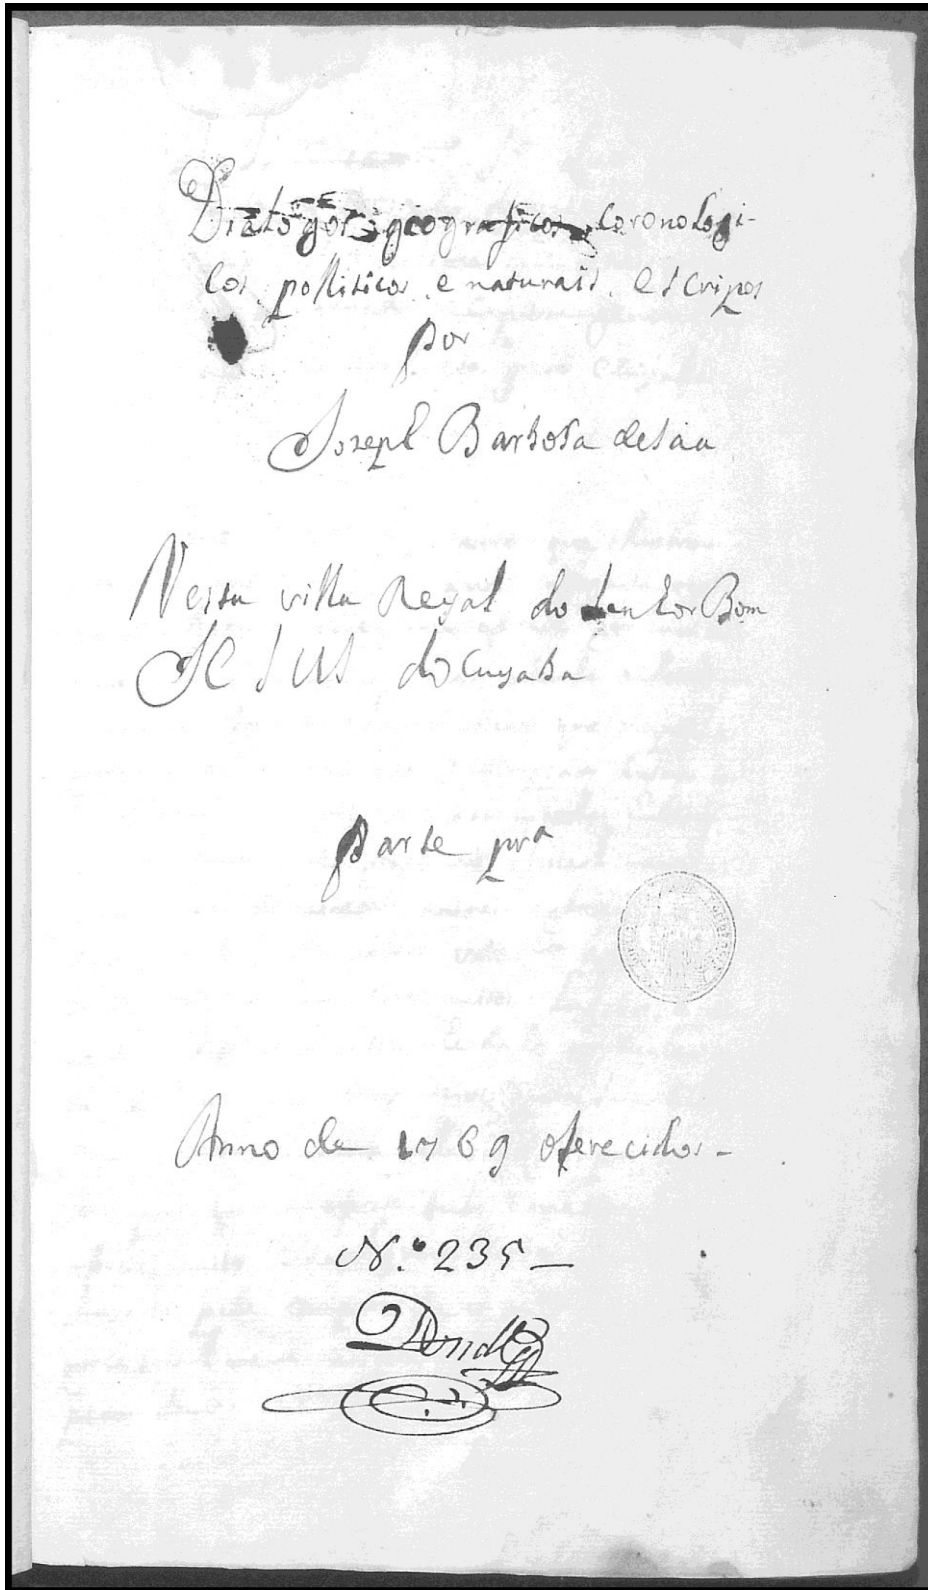 Dialogos geograficos coronologi-
cos polliticos e naturais escripos
por
Joseph Barbosa desaa
Nesta villa Real do Senhor Bom
JESUS do Cuyaba
Parte prª
Anno de 1769 oferecidos -
N.º 235 -